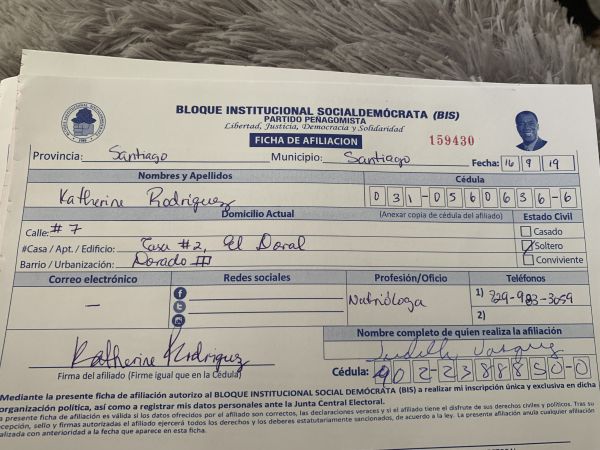 BLOQUE INSTITUCIONAL SOCIALDEMÓCRATA (BIS)
PARTIDO PEÑAGOMISTA
Libertad, Justicia, Democracia y Solidaridad
FICHA DE AFILIACION
159430
Provincia: Santiago Municipio: Santiago Fecha: 16 9 19
Nombres y Apellidos Cédula
Katherine Rodriguez 031-0560636-6
Domicilio Actual (Anexar copia de cédula del afiliado) Estado Civil
Calle: #7 Casado
#Casa / Apt. / Edificio: Casa #2, El Doral Soltero
Barrio / Urbanización: Dorado III Conviviente
Correo electrónico Redes sociales Profesión/Oficio Teléfonos
— Nutrióloga 1) 829-983-3059
2)
Nombre completo de quien realiza la afiliación
Katherine Rodriguez Vasquez
Firma del afiliado (Firme igual que en la Cédula) Cédula: 402-2388850-0
Mediante la presente ficha de afiliación autorizo al BLOQUE INSTITUCIONAL SOCIAL DEMÓCRATA (BIS) a realizar mi inscripción única y exclusiva en dicha
organización política, así como a registrar mis datos personales ante la Junta Central Electoral.
a presente ficha de afiliación es válida si los datos ofrecidos por el afiliado son correctos, las declaraciones veraces y si el afiliado tiene el disfrute de sus derechos civiles y políticos. Tras su
ecepción, sello y firmas autorizadas el afiliado ejercerá todos los derechos y los deberes estatutariamente sancionados, de acuerdo a la ley. La presente afiliación anula cualquier afiliación
alizada con anterioridad a la fecha que aparece en esta ficha.